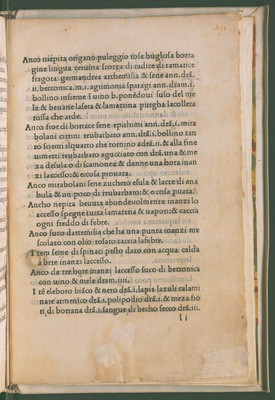 Anco niepita origano puleggio rose buglosa borra
gine lingua ceruina scorza di radice di tamarice
fragora germandrea artheniſia & sene ann. drã.
ii. bettonica. m. i. agrimonia sparagi ann. dram. i.
bollino inseme ĩ uino b. ponedoui suso del me
le & beuane la sera & la martina purgha la collera
rossa che arde.
Anco fior di borrace sene epithimi ann. drã. i. mira
bolani citrini reubarbaro ann. drã. i. bollino tan
to ĩ siemi il quarto che tornino adrã. ii. & alla fine
umetti reubarbaro aguzziato con drã. una & me
za desula o di scamonea & danne una hora inan
zi laccesso: & e cosa prouata.
Anco mirabolani sene zuchero esula & lacte di ana
bula & un poco di reubarbaro & e cosa prouata.
Ancho nepita beuuta abondeuolmente inanzi lo
accesso spegne tutta la materia & uaporı: & caccia
ogni freddo di febre.
Anco suco dattenisia che ha una punta inanzi me
scolato con olio rosato caccia la febre.
Item seme di spinaci pesto dato con acqua calda
a bere inanzi laccesso.
Anco da tre bote inanzi laccesso suco di bettonica
con uino & mele dram. iiii.
Itẽ eleboro bisco & nero drã. i. lapis lazuli calami
ta & armenico drã. i. polipodio drã. i. & meza fio
ri di borrana drã. i. sangue di becho secco drã. iii.
Ii